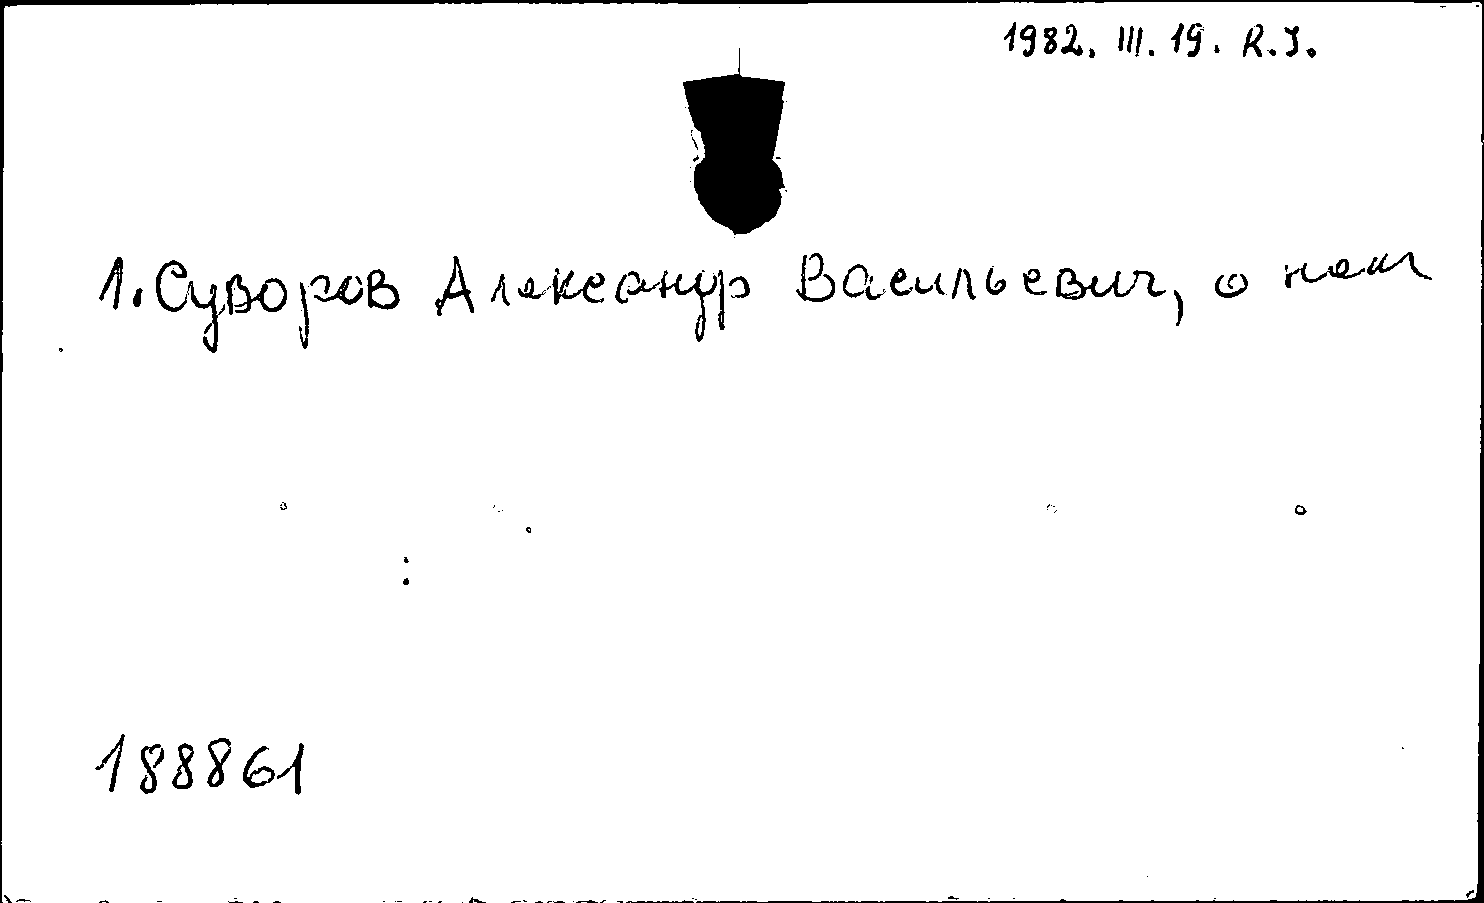 1982. III. 19. R.J.
1. Суворов Александр Васильевич, о нем
188861